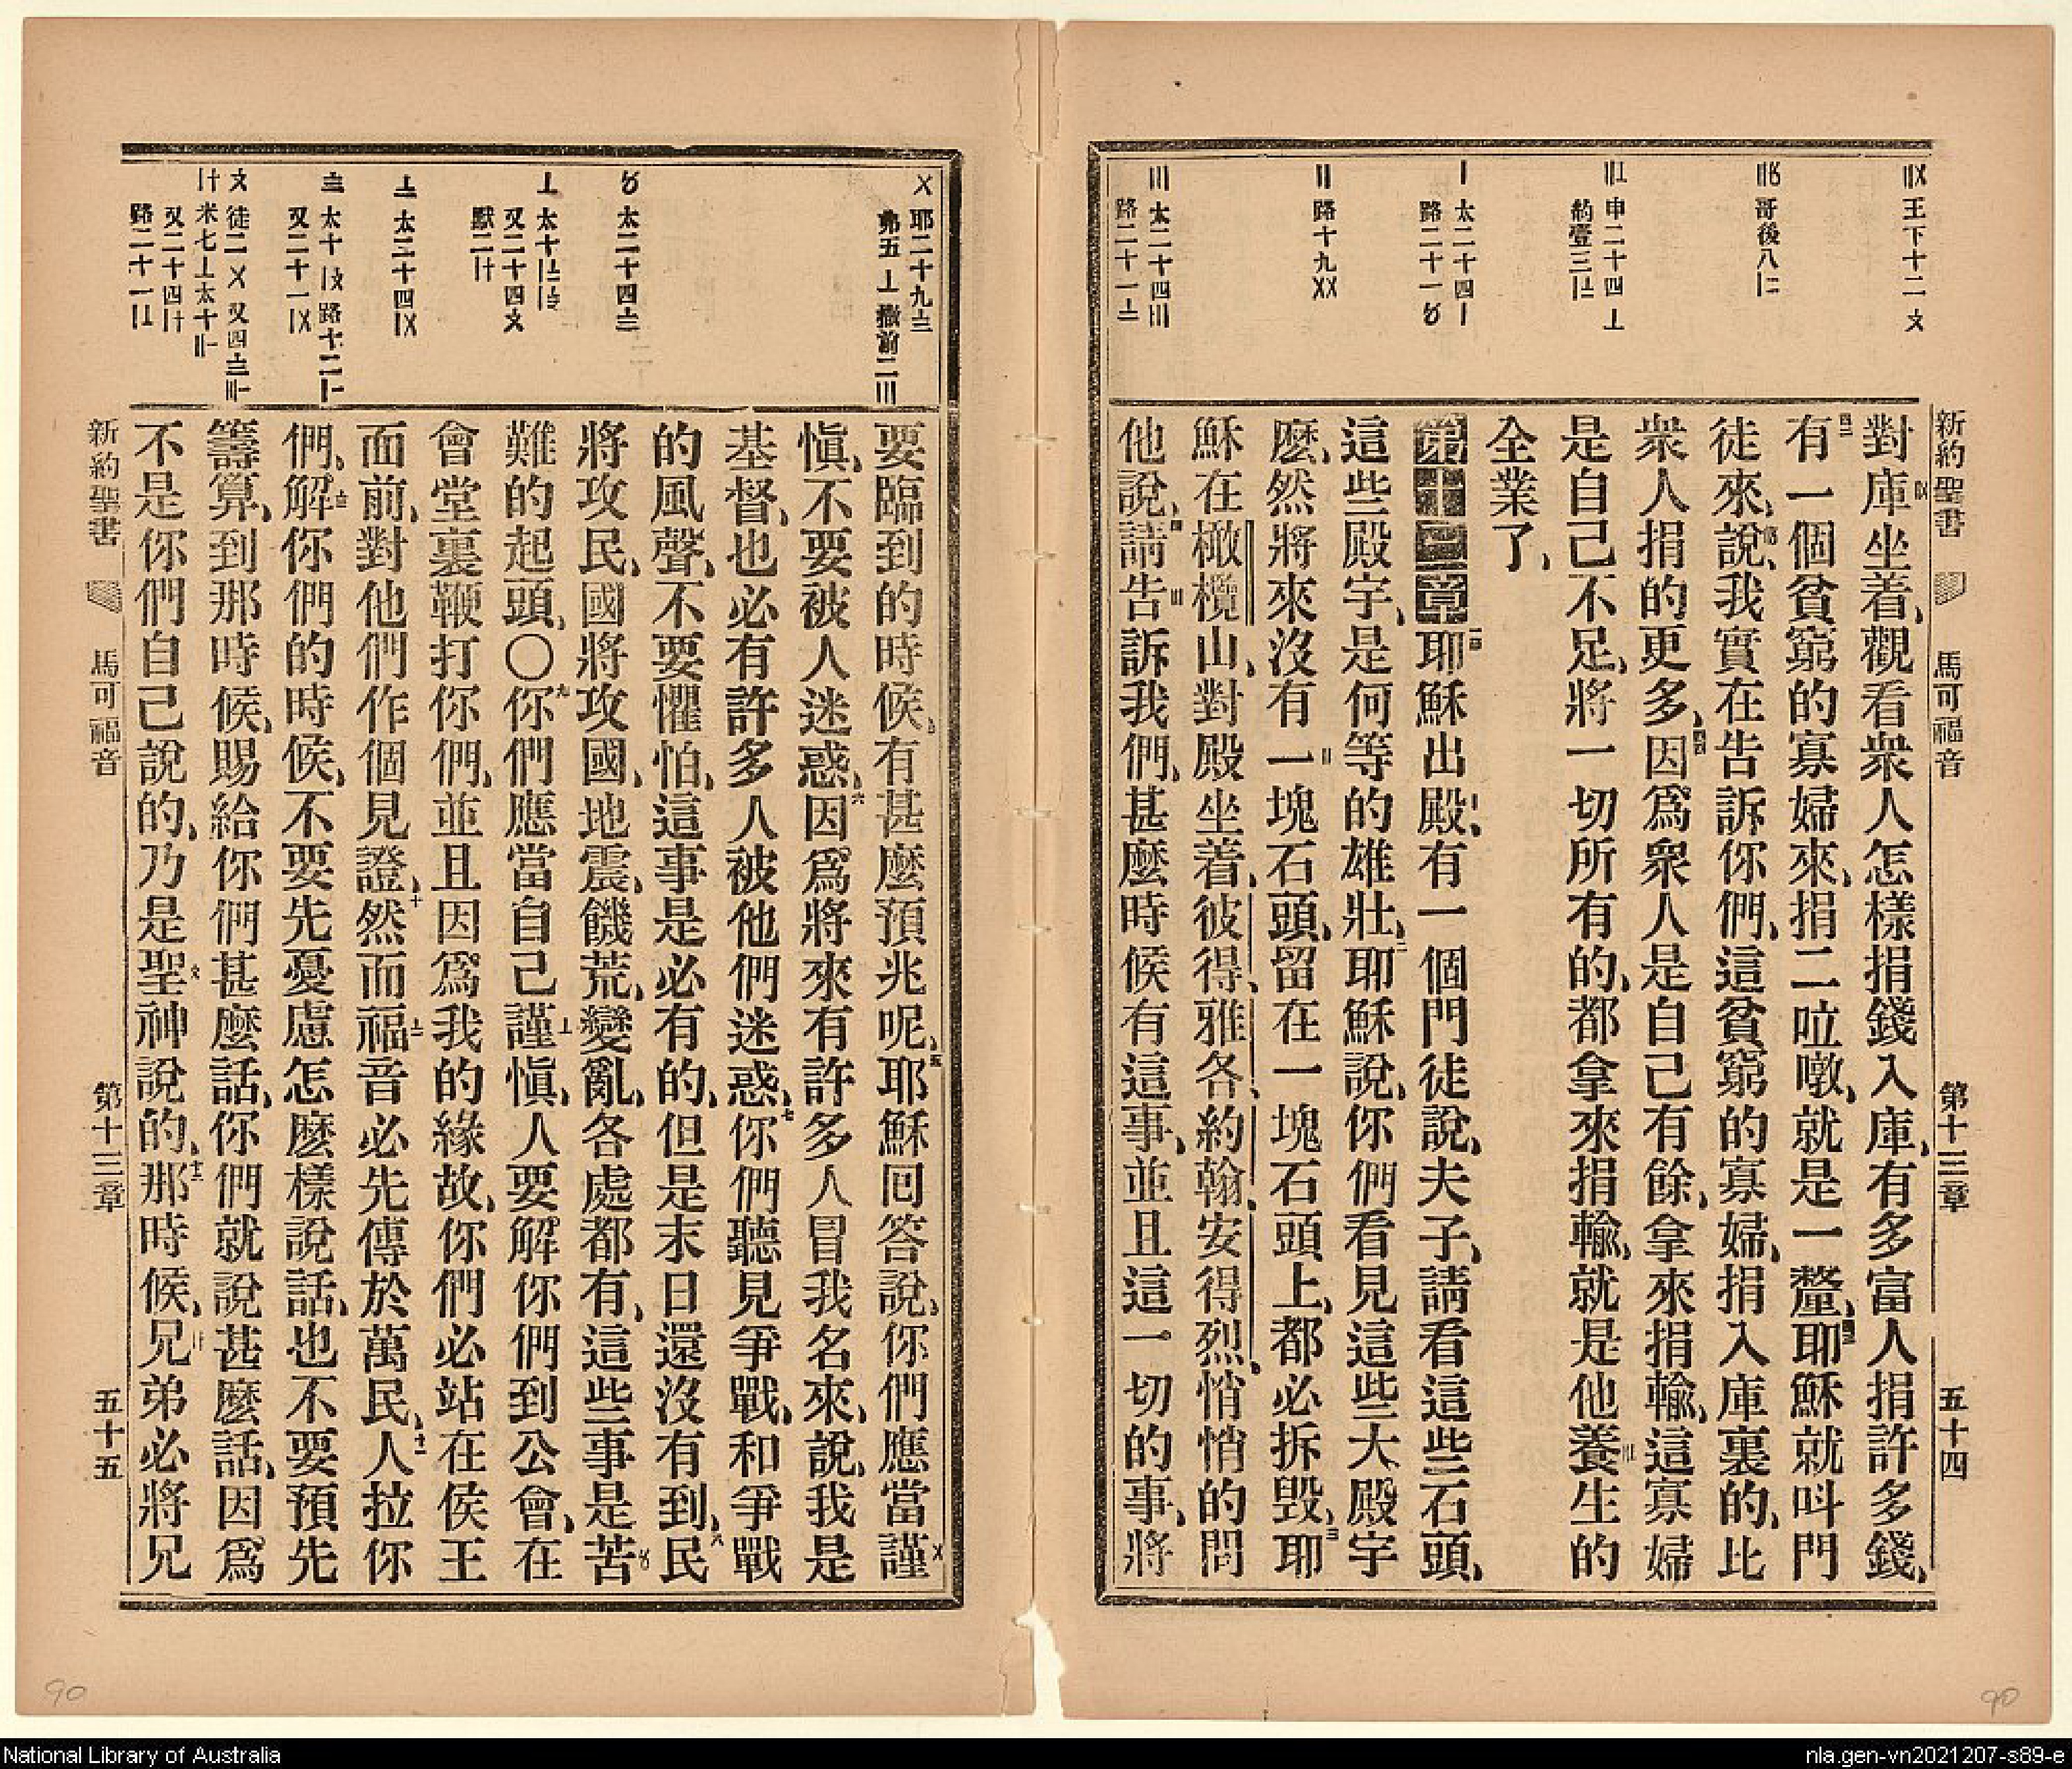 新約聖書 馬可福音 第十三章 五十四
王下十二〤
哥後八〢
申二十四〦
約壹三
太二十四〡
路二十一
路十九〤〤
太二十四〣
路二十一
對庫坐着、觀看衆人怎樣捐錢入庫、有多富人捐許多錢、
有一個貧窮的寡婦來、捐二㕸噋、就是一釐、耶穌就呌門
徒來、說、我實在告訴你們、這貧窮的寡婦、捐入庫裏的、比
衆人捐的更多、因爲衆人是自己有餘、拿來捐輸、這寡婦
是自己不足、將一切所有的、都拿來捐輸、就是他養生的
全業了、
第十三章 耶穌出殿、有一個門徒說、夫子、請看這些石頭、
這些殿宇、是何等的雄壯、耶穌說、你們看見這些大殿宇
麽、然將來沒有一塊石頭、留在一塊石頭上、都必拆毀、耶
穌在橄欖山、對殿坐着、彼得、雅各、約翰、安得烈、悄悄的問
他說、請告訴我們、甚麽時候有這事、並且這一切的事、將
耶二十九
弗五〦 撒前二〣
太二十四
太十
又二十四〤
默二
太二十四
太十 路十二
又二十一
徒二〤 又四
米七〦太十
又二十四
路二十一
要臨到的時候、有甚麽預兆呢、耶穌囘答說、你們應當謹
愼、不要被人迷惑、因爲將來有許多人冒我名來、說、我是
基督、也必有許多人被他們迷惑、你們聽見爭戰、和爭戰
的風聲、不要懼怕、這事是必有的、但是末日還沒有到、民
將攻民、國將攻國、地震、饑荒、變亂、各處都有、這些事是苦
難的起頭、〇你們應當自己謹愼、人要解你們到公會、在
會堂裏鞭打你們、並且因爲我的緣故、你們必站在侯王
面前、對他們作個見證、然而福音必先傳於萬民、人拉你
們、解你們的時候、不要先憂慮怎麽樣說話、也不要預先
籌算、到那時候、賜給你們甚麽話、你們就說甚麽話、因爲
不是你們自己說的、乃是聖神說的、那時候、兄弟必將兄
新約聖書 馬可福音 第十三章 五十五
90
90
National Library of Australia
nla.gen-vn2021207-s89-e